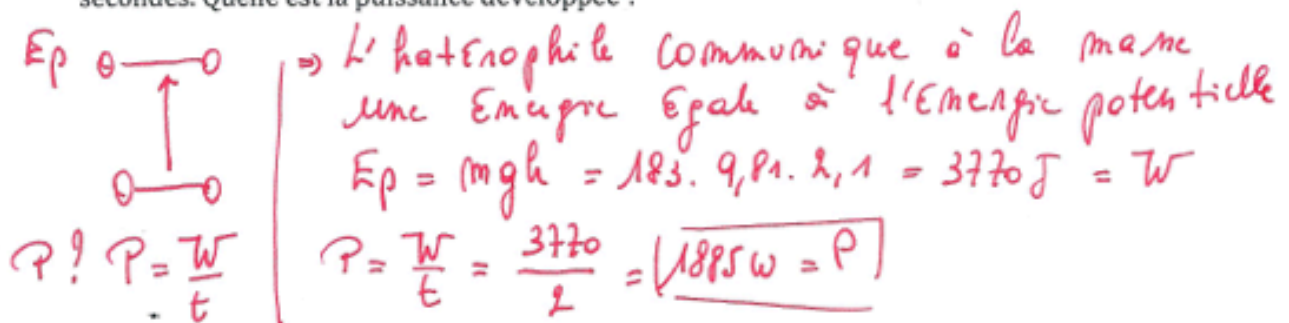 secondes. Quelle est la puissance développée ?
Ep
=> L'haterophile communique à la masse
une Energie Egale à l'Energie potentielle
Ep = mgh = 183. 9,81. 2,1 = 3770 J = W
P? P = W/t
P = W/t = 3770/2 = 1885 W = P